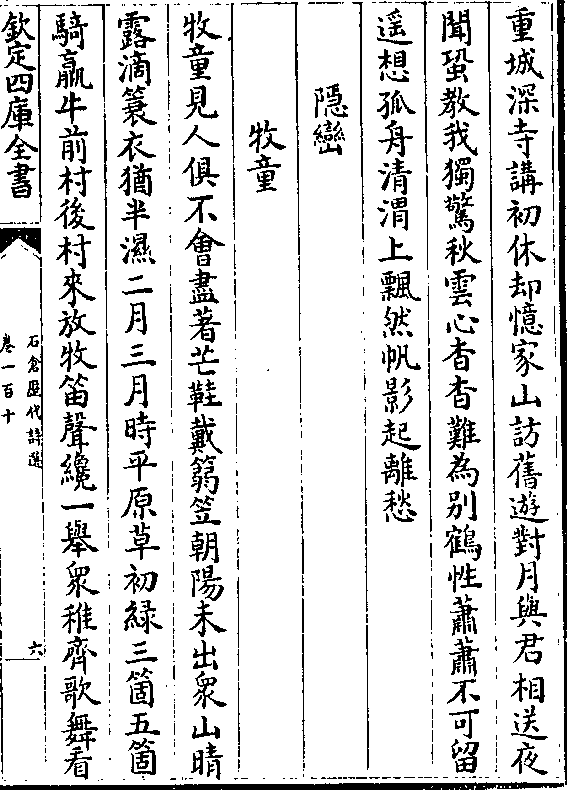 重城深寺講初休却憶家山訪舊遊對月與君相送夜
聞蛩教我獨驚秋雲心杳杳難為別鶴性蕭蕭不可留
遥想孤舟清渭上飄然帆影起離愁
隠巒
牧童
牧童見人俱不會盡著芒鞋戴篛笠朝陽未出衆山晴
露滴簑衣猶半濕二月三月時平原草初緑三箇五箇
騎羸牛前村後村來放牧笛聲纔一舉衆稚齊歌舞看
欽定四庫全書
石倉歴代詩選
卷一百十
六